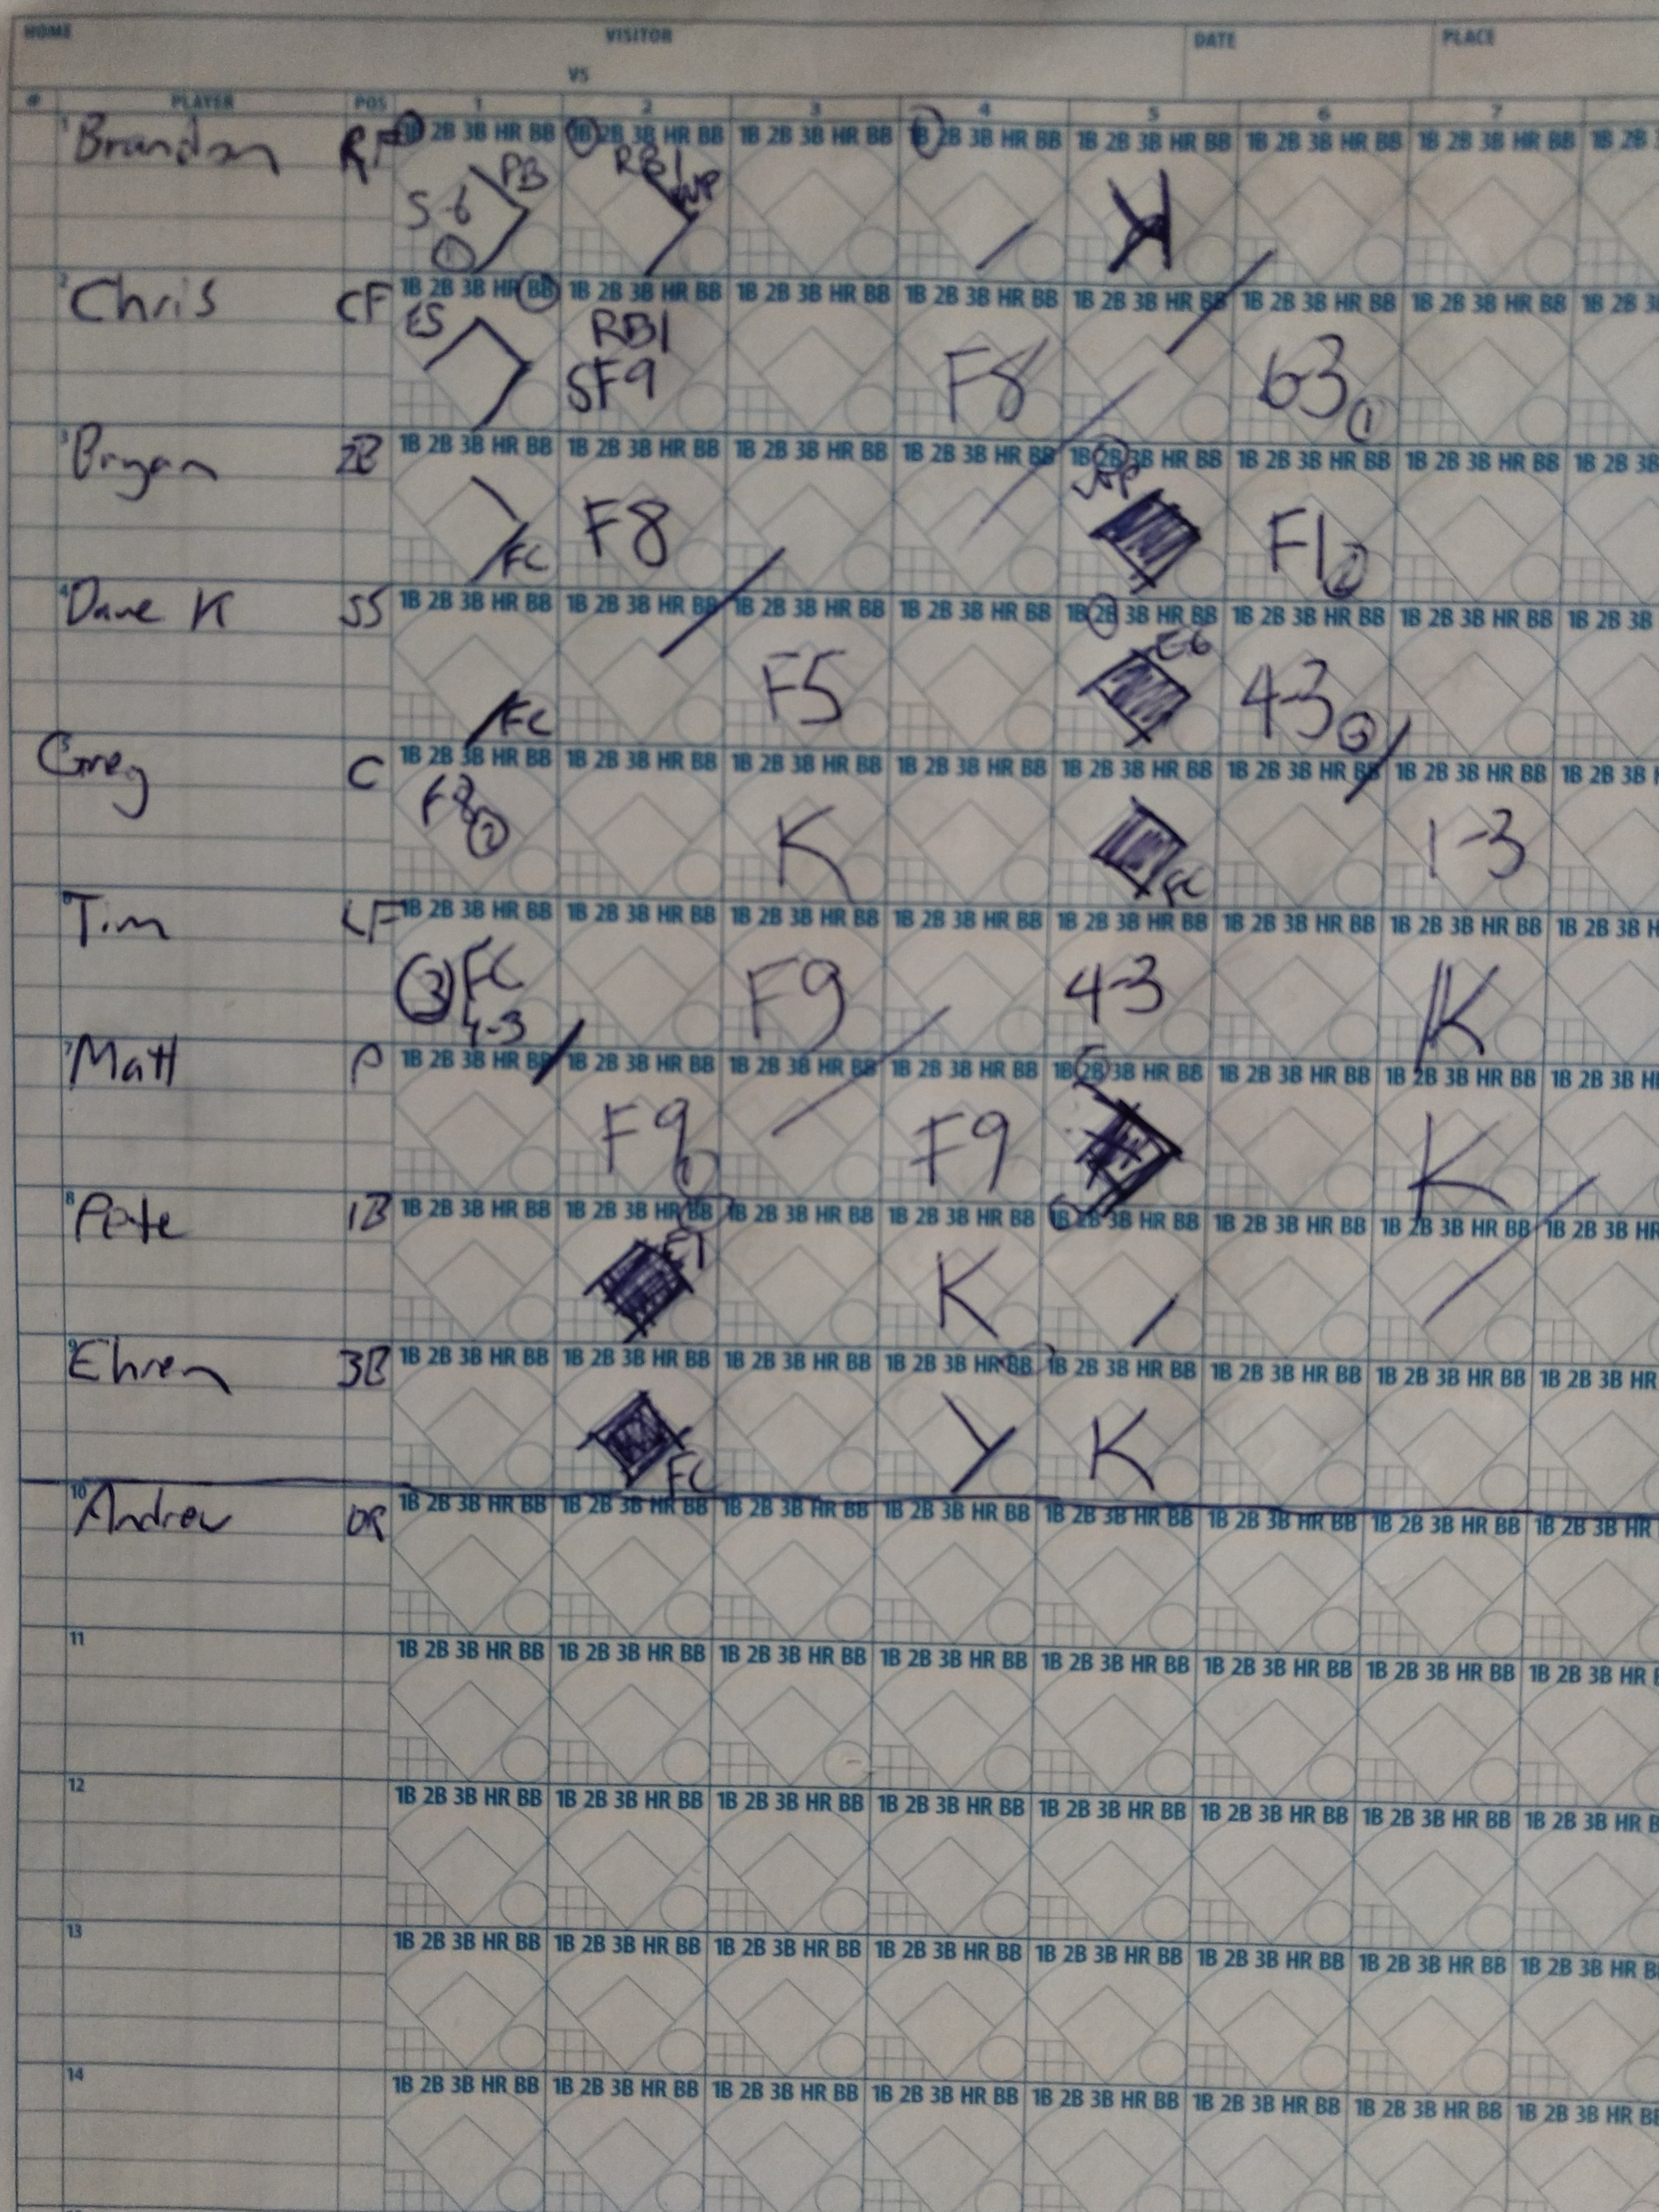 HOME VISITOR DATE PLACE
VS
# PLAYER POS 1 2 3 4 5 6 7
1 Brandon RF 1B 2B 3B HR BB 1B 2B 3B HR BB 1B 2B 3B HR BB 1B 2B 3B HR BB 1B 2B 3B HR BB 1B 2B 3B HR BB 1B 2B 3B HR BB 1B 2B
PB RBI WP
5-6
1
2 Chris CF 1B 2B 3B HR BB 1B 2B 3B HR BB 1B 2B 3B HR BB 1B 2B 3B HR BB 1B 2B 3B HR BB 1B 2B 3B HR BB 1B 2B 3B HR BB 1B 2B 3B
RBI
SF9 F8 63 1
3 Bryan 2B 1B 2B 3B HR BB 1B 2B 3B HR BB 1B 2B 3B HR BB 1B 2B 3B HR BB 1B 2B 3B HR BB 1B 2B 3B HR BB 1B 2B 3B HR BB 1B 2B 3B
FC F8 F1 2
4 Dave K SS 1B 2B 3B HR BB 1B 2B 3B HR BB 1B 2B 3B HR BB 1B 2B 3B HR BB 1B 2B 3B HR BB 1B 2B 3B HR BB 1B 2B 3B HR BB 1B 2B 3B
E6
FC F5 4-3 3
5 Greg C 1B 2B 3B HR BB 1B 2B 3B HR BB 1B 2B 3B HR BB 1B 2B 3B HR BB 1B 2B 3B HR BB 1B 2B 3B HR BB 1B 2B 3B HR BB 1B 2B 3B
2 K FC 1-3
6 Tim LF 1B 2B 3B HR BB 1B 2B 3B HR BB 1B 2B 3B HR BB 1B 2B 3B HR BB 1B 2B 3B HR BB 1B 2B 3B HR BB 1B 2B 3B HR BB 1B 2B 3B H
3 FC F9 4-3 K
4-3
7 Matt P 1B 2B 3B HR BB 1B 2B 3B HR BB 1B 2B 3B HR BB 1B 2B 3B HR BB 1B 2B 3B HR BB 1B 2B 3B HR BB 1B 2B 3B HR BB 1B 2B 3B H
F9 1 F9 K
8 Pete 1B 1B 2B 3B HR BB 1B 2B 3B HR BB 1B 2B 3B HR BB 1B 2B 3B HR BB 1B 2B 3B HR BB 1B 2B 3B HR BB 1B 2B 3B HR BB 1B 2B 3B HR
E1 K
9 Ehren 3B 1B 2B 3B HR BB 1B 2B 3B HR BB 1B 2B 3B HR BB 1B 2B 3B HR BB 1B 2B 3B HR BB 1B 2B 3B HR BB 1B 2B 3B HR BB 1B 2B 3B HR
FC K
10 Andrew 1B 2B 3B HR BB 1B 2B 3B HR BB 1B 2B 3B HR BB 1B 2B 3B HR BB 1B 2B 3B HR BB 1B 2B 3B HR BB 1B 2B 3B HR BB 1B 2B 3B HR
11 1B 2B 3B HR BB 1B 2B 3B HR BB 1B 2B 3B HR BB 1B 2B 3B HR BB 1B 2B 3B HR BB 1B 2B 3B HR BB 1B 2B 3B HR BB 1B 2B 3B HR
12 1B 2B 3B HR BB 1B 2B 3B HR BB 1B 2B 3B HR BB 1B 2B 3B HR BB 1B 2B 3B HR BB 1B 2B 3B HR BB 1B 2B 3B HR BB 1B 2B 3B HR B
13 1B 2B 3B HR BB 1B 2B 3B HR BB 1B 2B 3B HR BB 1B 2B 3B HR BB 1B 2B 3B HR BB 1B 2B 3B HR BB 1B 2B 3B HR BB 1B 2B 3B HR B
14 1B 2B 3B HR BB 1B 2B 3B HR BB 1B 2B 3B HR BB 1B 2B 3B HR BB 1B 2B 3B HR BB 1B 2B 3B HR BB 1B 2B 3B HR BB 1B 2B 3B HR BB